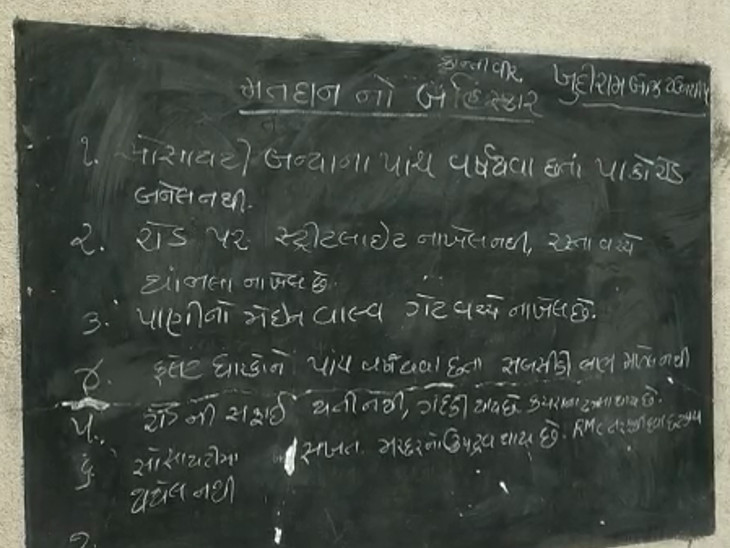 ક્રાન્તીવીર ખુદીરામ બોઝ
મતદાન નો બહિસ્કાર
૧. સોસાયટી બન્યાના પાંચ વર્ષથવા છતાં પાકો રોડ
બનેલ નથી.
૨. રોડ પર સ્ટ્રીટલાઇટ નાખેલ નથી, રસ્તા વચ્ચે
થાંભલા નાખેલ છે.
૩. પાણીનો મેઇન વાલ્વ ગેટ વચ્ચે નાખેલ છે.
૪. ફલેટ ધારકોને પાંચ વર્ષ થવા છતા સબસીડી લાભ મળેલ નથી
૫. રોડ ની સફાઈ થતી નથી, ગંદકી થાય છે કચરાના ઢગલા થાય છે.
૬. સોસાયટીમા સખત મચ્છરનો ઉપદ્રવ થાય છે. RMC તરફથી દવા છંટકાવ
થયેલ નથી
૭.